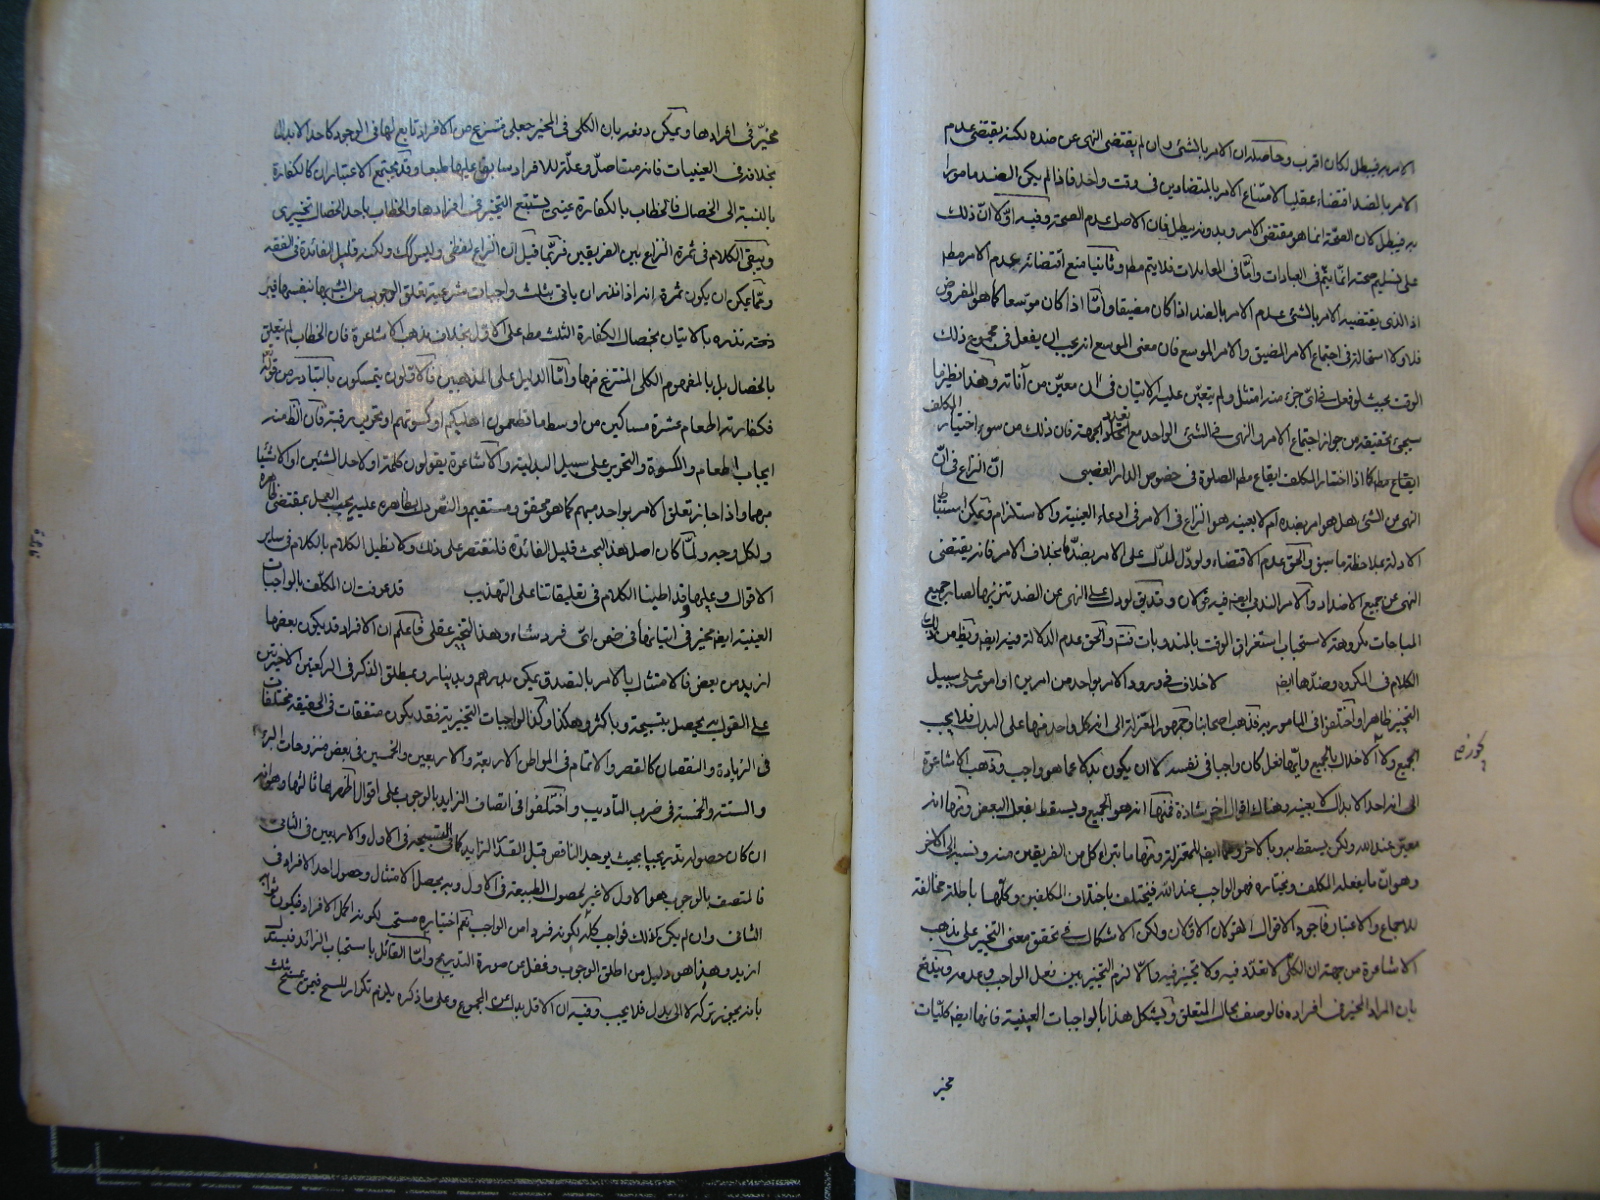 الامر به فيبطل لكان اقرب وحاصله ان الامر بالشئ وان لم يقتضى النهى عن ضده لكنه يقتضى عدم
الامر بالضد اقتضاء عقليا لامتناع الامر بالمتضادين فى وقت واحد فاذا لم يكن الضد مامورا
به فيبطل كان الصحة انما هو مقتضى الامر وبدونه يبطل فان الاصل عدم الصحة وفيه اولا ان ذلك
على تسليم صحته انما يتم فى العبادات واما فى المعاملات فلا يتم مطم وثانيا منع اقتضائه عدم الامر مطم
اذ الذى يقتضيه الامر بالشئ عدم الامر بالضد اذا كان مضيقا واما اذا كان موسعا كما هو المفروض
فلا ولا استحالة فى اجتماع الامر المضيق والامر الموسع فان معنى الموسع انه يجب ان يفعل فى مجموع ذلك
الوقت بحيث لو فعل فى اى جزء منه امتثل ولم يتعين عليه الاتيان فى ان معين من آناته وهذا نظير ما
سيجئ تحقيقه من جواز اجتماع الامر والنهى فى الشئ الواحد مع تعدد الجهة فان ذلك من سوء اختيار المكلف
ايقاع مطم كما اذا اختار المكلف ايقاع مطم الصلوة فى خصوص الدار الغصبى ان النزاع فى ان
النهى عن الشئ هل هو امر بضده ام لا بعينه هو النزاع فى الامر فى ادعاء العينية والاستلزام ويمكن استنباط
الادلة بملاحظة ما سبق والحق عدم الاقتضاء ولو دل لدل على الامر بضد ما بخلاف الامر فانه يقتضى
النهى عن جميع الاضداد والامر الندبى ايضم فيه قولان وقد يق لو دل على النهى عن الضد تنزيها لصار جميع
المباحات مكروهة لاستحباب استغراق الوقت بالمندوبات فتم والحق عدم الدلالة فيه ايضم ويظهر من ذلك
الكلام فى المكروه وضدها ايضم لا خلاف فى ورود الامر بواحد من امرين او امور على سبيل
التخيير ظاهرا واختلفوا فى المامور به فذهب اصحابنا وجمهور المعتزلة الى انه كل واحد منها على البدل فلا يجب
الجميع ولا الاخلال بالجميع وايها فعل كان واجبا فى نفسه لا ان يكون بدلا عما هو واجب وذهب الاشاعرة
الى انه احد الابدال لا بعينه وهناك اقوال اخر شاذة فمنها انه هو الجميع ويسقط بفعل البعض ومنها انه
معين عند الله ولكن يسقط به وبالاخر وهما ايضم للمعتزلة ومنها ما تبراء كل من الفريقين منه ونسبه الى الاخر
وهو ان ما يفعله المكلف ويختاره فهو الواجب عند الله فيختلف باختلاف المكلفين وكلها باطلة مخالفة
للاجماع والاعتبار فاجود الاقوال القولان الاولان ولكن الاشكال فى تحقق معنى التخيير على مذهب
الاشاعرة من جهة ان الكلى لا تعدد فيه ولا تخيير فيه والا لزم التخيير بين فعل الواجب وعدمه ويندفع
بان المراد المخير فى افراده فالوصف بحال المتعلق ويشكل هذا بالواجبات العينية فانها ايضم كليات
مخير
مخير فى افرادها ويمكن دفعه بان الكلى فى المخير جعلى منتزع من الافراد تابع لها فى الوجود كاحد الابدال
بخلافه فى العينيات فانه متاصل وعلة للافراد سابق عليها طبعا وقد يجتمع الاعتباران كالكفارة
بالنسبة الى الخصال فالخطاب بالكفارة عينى يستتبع التخيير فى افرادها والخطاب باحد الخصال تخييرى
ويبقى الكلام فى ثمرة النزاع بين الفريقين فربما قيل ان النزاع لفظى وليس كك ولكنه قليل الفائدة فى الفقه
ومما يمكن ان يكون ثمرة انه اذا نذر ان ياتى بثلث واجبات شرعية تعلق الوجوب من الشم بها نفسها فيبر
ذمته نذره بالاتيان بخصال الكفارة الثلث مطم على الاول بخلاف مذهب الاشاعرة فان الخطاب لم يتعلق
بالخصال بل بالمفهوم الكلى المنتزع منها واما الدليل على المذهبين فالاولون يتمسكون بالتبادر من قوله تعم
فكفارته اطعام عشرة مساكين من اوسط ما تطعمون اهليكم او كسوتهم او تحرير رقبة فان الظم منه
ايجاب الطعام والكسوة والتحرير على سبيل البدلية والاشاعرة يقولون كلمة او لاحد الشيئين او الاشياء
مبهما واذا جاز تعلق الامر بواحد مبهم كما هو محقق ومستقيم والنص دل بظاهره عليه يجب العمل بمقتضى ظاهره
ولكل وجه ولما كان اصل هذا البحث قليل الفائدة فلنقتصر على ذلك ولا نطيل الكلام بالكلام فى ساير
الاقوال وعليها وقد اطنبنا الكلام فى تعليقاتنا على التهذيب قد عرفت ان المكلف بالواجبات
العينية ايضم مخير فى اتيانها فى ضمن اى فرد شاء وهذا التخيير عقلى فاعلم ان الافراد قد يكون بعضها
ازيد من بعض فالامتثال بالامر بالتصدق يمكن بدرهم وبدينار وبمطلق الذكر فى الركعتين الاخيرتين
على القول به يحصل بتسبيحة وباكثر وهكذا وكذا الواجبات التخييرية فقد يكون متفقات فى الحقيقة مختلفات
فى الزيادة والنقصان كالقصر والاتمام فى المواطن الاربعة والاربعين والخمسين فى بعض منزوحات البئر
والستة والخمسة فى ضرب التاديب واختلفوا فى اتصاف الزايد بالوجوب على اقوال اظهرها ثالثها وهو انه
ان كان حصوله تدريجيا بحيث يوجد الناقص قبل القدر الزايد كما فى التسبيحة فى الاول والاربعين فى الثانى
فالمتصف بالوجوب هو الاول لا غير لحصول الطبيعة فى الاول وبه يحصل الامتثال وحصول احد الافراد فى
الثانى وان لم يكن كذلك فواجب كله لكونه فردا من الواجب نعم اختياره مستحب لكونه اكمل الافراد فيكون ثوابه
ازيد وهذا هو دليل من اطلق الوجوب وغفل عن صورة التدريج واما القائل باستحباب الزائد فيستدل
بانه يجوز تركه لا الى بدل فلا يجب وفيه ان الاقل بدل عن المجموع وعلى ما ذكره يلزم تكرار المسح فيمن مسح بثلث